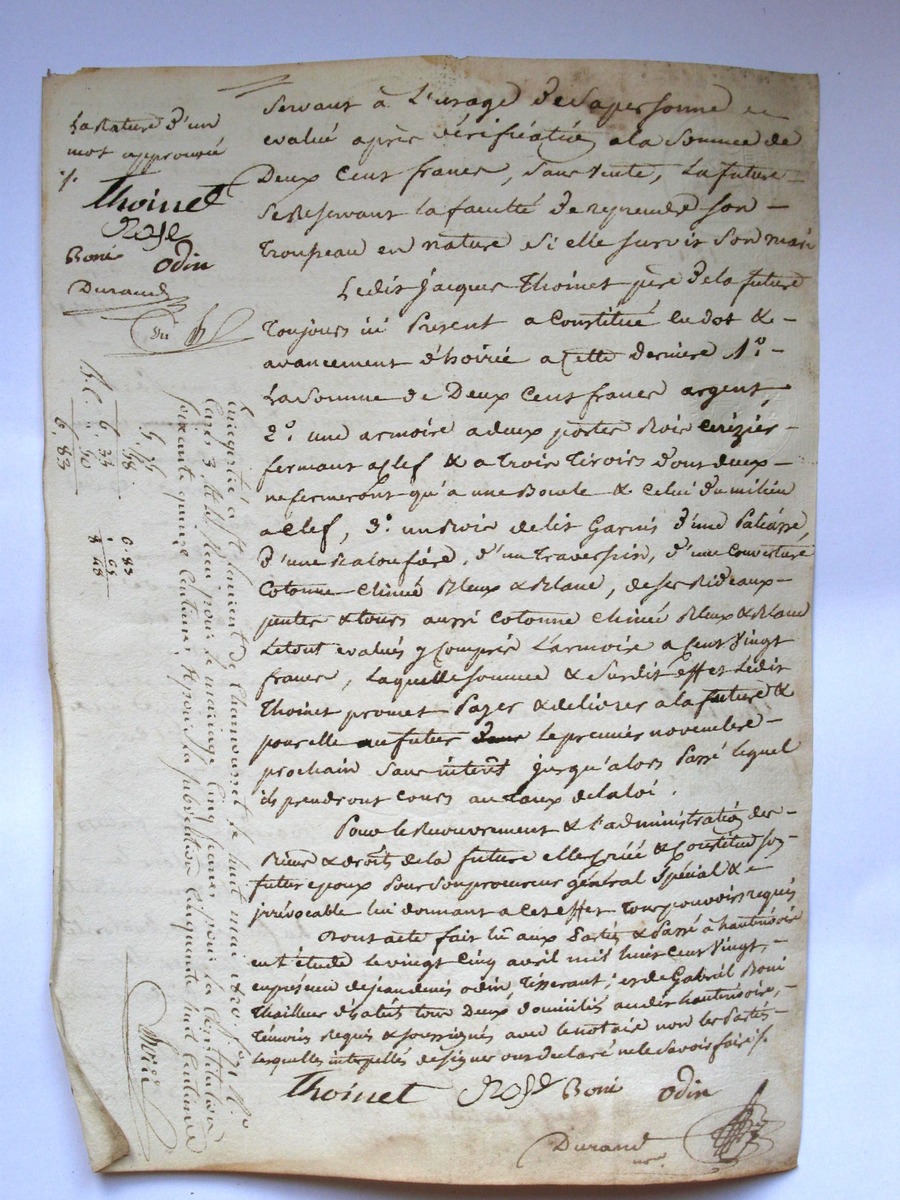 La rature d'un
mot approuvé
./.
Thoinet
Rose
Boni odin
Durand
Servant à L'usage de Sa personne et
evalué après vérification a la Somme de
Deux Cent francs, Sans vente, La future
Se Reservant la faculté de reprendre Son
troupeau en nature Si elle survit Son mari
Ledit Jacques Thoinet père de la future
toujours ici Présent a Constitué en dot &
avancement d'hoirie a Cette derniere 1.º
La Somme de Deux Cent francs argent,
2.º une armoire a deux portes Bois cerizier
fermant a clef & a trois tiroirs dont deux
ne fermeront qu'a une Boucle & Celui du milieu
a Clef, 3.º un Bois de lit Garnis d'une Paliasse,
d'une Baloufière, d'un traversin, d'une Couverture
Cotonne Chinée Bleux & Blanc, de Ses Rideaux
pentes & tours aussi Cotonne Chinée Bleux & Blanc
Le tout evalués y Compris L'armoire a Cent Vingt
francs, Laquelle Somme & Susdit effet Ledit
Thoinet promet Payer & delivrer a la future &
pour elle au futur le premier novembre
prochain Sans intérêt jusqu'alors Passé lequel
ils prendront Cours au taux de la loi.
Pour le Recouvrement & L'administration des
Biens & droits de la future elle Créé & Constitue Son
futur epoux Pour Son procureur général Spécial &
irrévocable lui donnant a Cet effet tous pouvoirs requis
Dont acte fait lû aux Partes & Passé à hautrivoire
en L'étude le vingt Cinq avril mil huit Cent Vingt,
en présence de jean denis odin, tisserant; et de Gabriel Boni
thailleur d'habits tous Deux domiciliés audit hautrivoire,
Témoins Requis & soussignés avec le notaire non les Partes
lesquelles interpellés de signer ont déclaré ne le Savoir faire ./.
Thoinet Rose Boni odin
Durand
Enregistré à St Laurent de Chamousset le huit mai 1820. f.
Case 3, Reçu pour le mariage Cinq francs pour la Constitution
soixante quinze Centimes & pour la subvention Cinquante huit Centimes
5, 75
, 58
6. 33
, 50
6, 83
6. 83
1 65
8 48